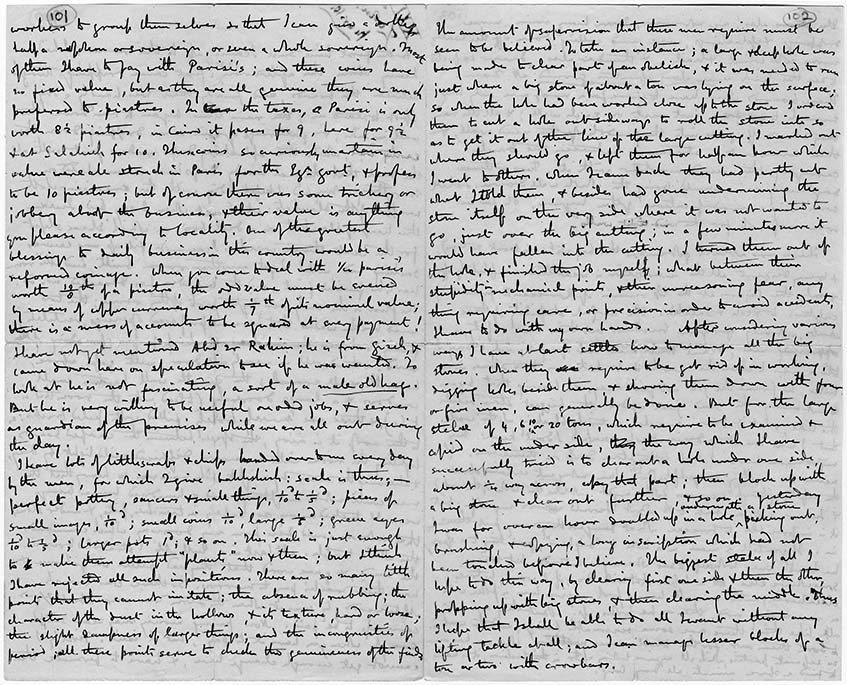 101
workers to group themselves so that I can give a
half a napoleon or sovereign, or even a whole sovereign. Most
of them I have to pay with Parisi's; and these coins have
no fixed value, but as they are all genuine they are much
preferred to piastres. In the taxes, a Parisi is only
worth 8½ piastres, in Cairo it passes for 9, here for 9½
& at Salahieh for 10. These coins so curiously uncertain in
value were all struck in Paris for the Egn. govt, & profess
to be 10 piastres; but of course there was some trickery or
jobbery about the business, & their value is anything
you please according to locality. One of the greatest
blessings to daily business in this country would be a
reformed coinage. When you come to deal with parisis
worth of a piastre, the odd value must be covered
by means of copper currency worth 1/7th of its nominal value;
there is a mess of accounts to be squared at every payment!
I have not yet mentioned Abd er Rahim; he is from Gizeh, &
came down here on speculation to see if he was wanted. To
look at he is not fascinating, a sort of a male old hag.
But he is very willing to be useful on odd jobs, & serves
as guardian of the premises while we are all out during
the day.
I have lots of little scraps & chips handed over to me every day
by the men, for which I give bakhshish: scale is thus;—
perfect pottery, saucers & small things, 1/10d to 1/5d; pieces of
small images, 1/10d; small coins 1/10d large 1/5d; green eyes
1/10d to 1/5d; larger pots, 1d; & so on. This scale is just enough
to make them attempt "plants" now & then; but I think
I have rejected all such impositions. There are so many little
points that they cannot imitate; the absence of rubbing; the
character of the dust in the hollows & its texture, hard or loose;
the slight dampness of larger things; and the incongruities of
period; all these points serve to check the genuineness of the finds
102
The amount of supervision that these men require must be
seen to be believed. To take an instance; a large & deep hole was
being made to clear part of an obelisk, & it was needed to run
just where a big stone of about a ton was lying on the surface;
so when the hole had been worked close up to the stone I ordered
them to cut a hole out sideways to roll the stone into so
as to get it out of the line of the large cutting. I marked out
where they should go, & left them for half an hour while
I went to others. When I came back they had partly cut
what I told them, & besides had gone undermining the
stone itself on the very side where it was not wanted to
go, just over the big cutting; in a few minutes more it
would have fallen into the cutting. I turned them out of
the hole, & finished the job myself; what between their
stupidity in mechanical points, & their unreasoning fear, any
thing requiring care, or precision in order to avoid accidents,
I have to do with my own hands. After considering various
ways I have at last settled how to manage all the big
stones. When they require to be got rid of in working,
digging holes beside them & shoving them down with four
or five men, can generally be done. But for the large
stelae of 4, 6, 10 or 20 tons, which require to be examined &
copied on the under side, the way which I have
successfully tried is to clear out a hole under one side
about way across, copy that part; then block up with
a big stone & clear out further, & so on. Yesterday
I was for over an hour doubled up in a hole underneath a stone picking out,
brushing, & copying, a long inscription which had not
been touched before I believe. The biggest stelae of all I
hope to do this way, by clearing first one side & then the other,
propping up with big stones, & then clearing the middle. Thus
I hope that I shall be able to do all I want without any
lifting tackle at all; and I can manage lesser blocks of a
ton or two with crowbars.